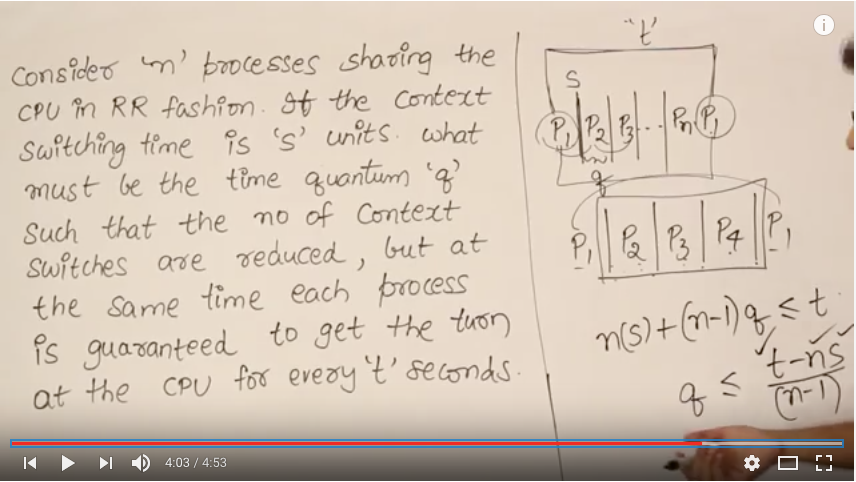 Consider 'n' processes sharing the
CPU in RR fashion. If the Context
switching time is 's' units. what
must be the time quantum 'q'
such that the no of Context
switches are reduced, but at
the same time each process
is guaranteed to get the turn
at the CPU for every 't' seconds.
"t'
S
P1 P2 P3 ... Pn P1
q
P1 P2 P3 P4 P1
n(s)+(n-1)q ≤ t
q ≤ t-ns/(n-1)
4:03 / 4:53